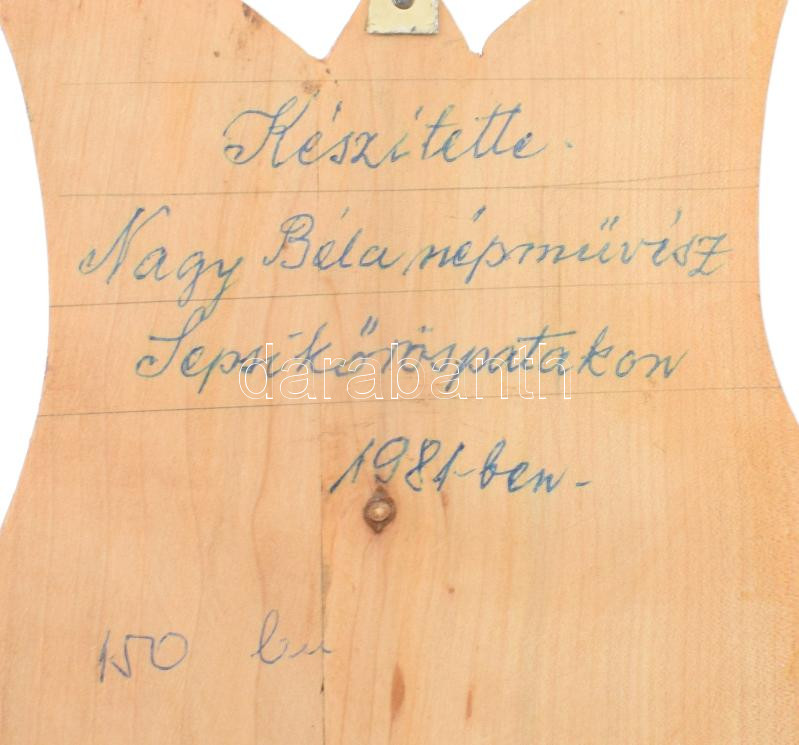 Készítette.
Nagy Béla népművész
Sepsikőröspatakon
darabanth
1981-ben-
150 lei